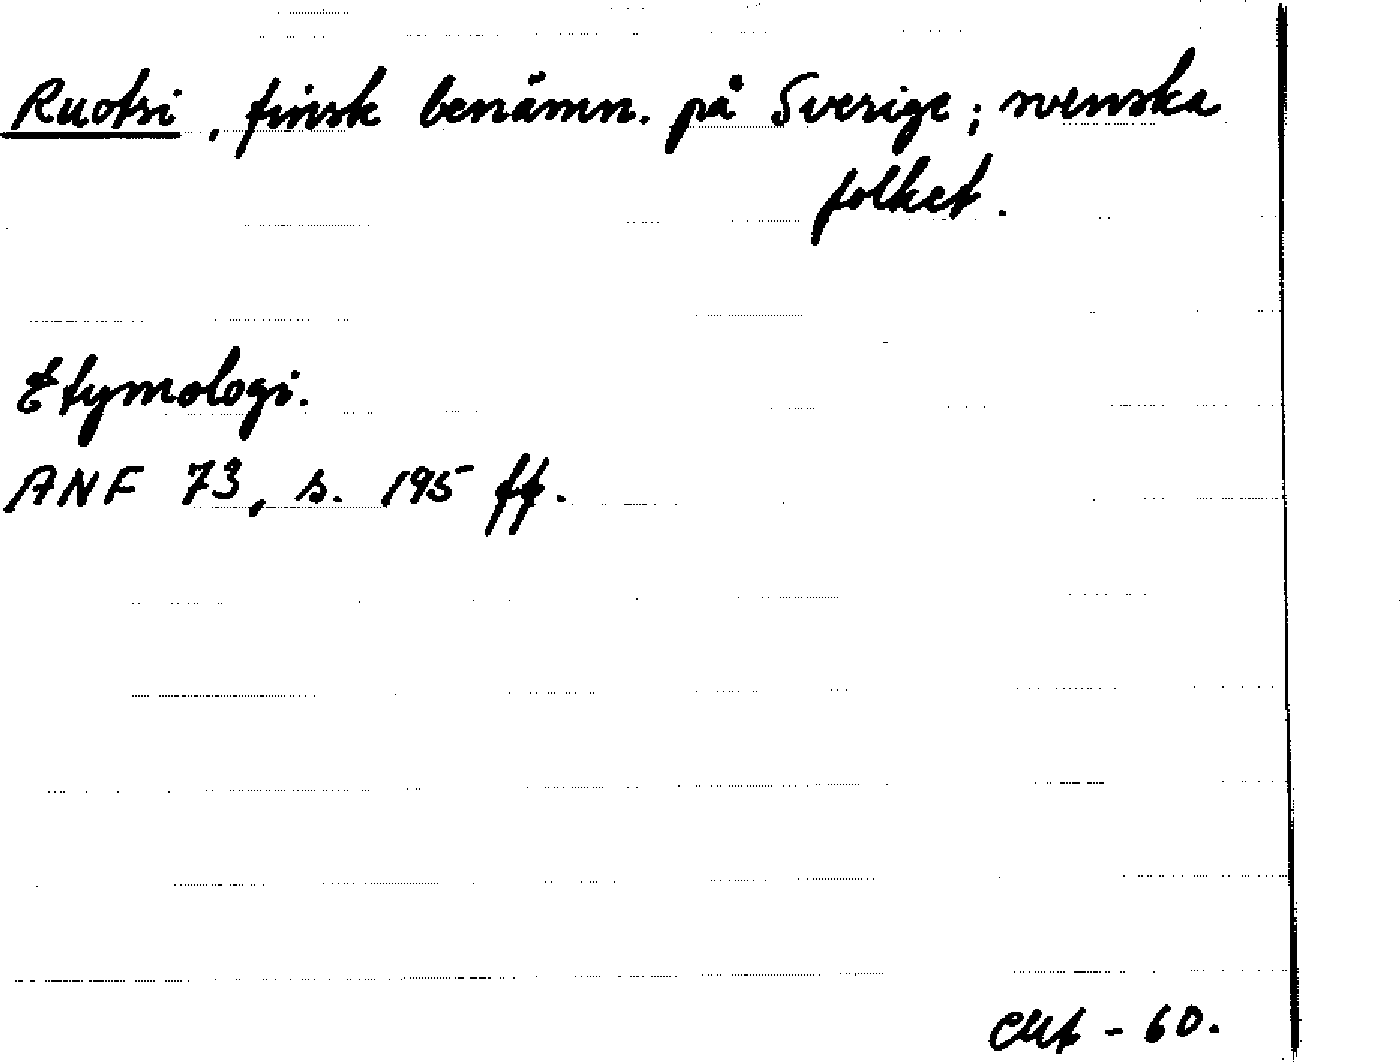 Ruotsi, finsk benämn. på Sverige; svenska
folket.
Etymologi.
ANF 73, s. 195 ff.
- 60.